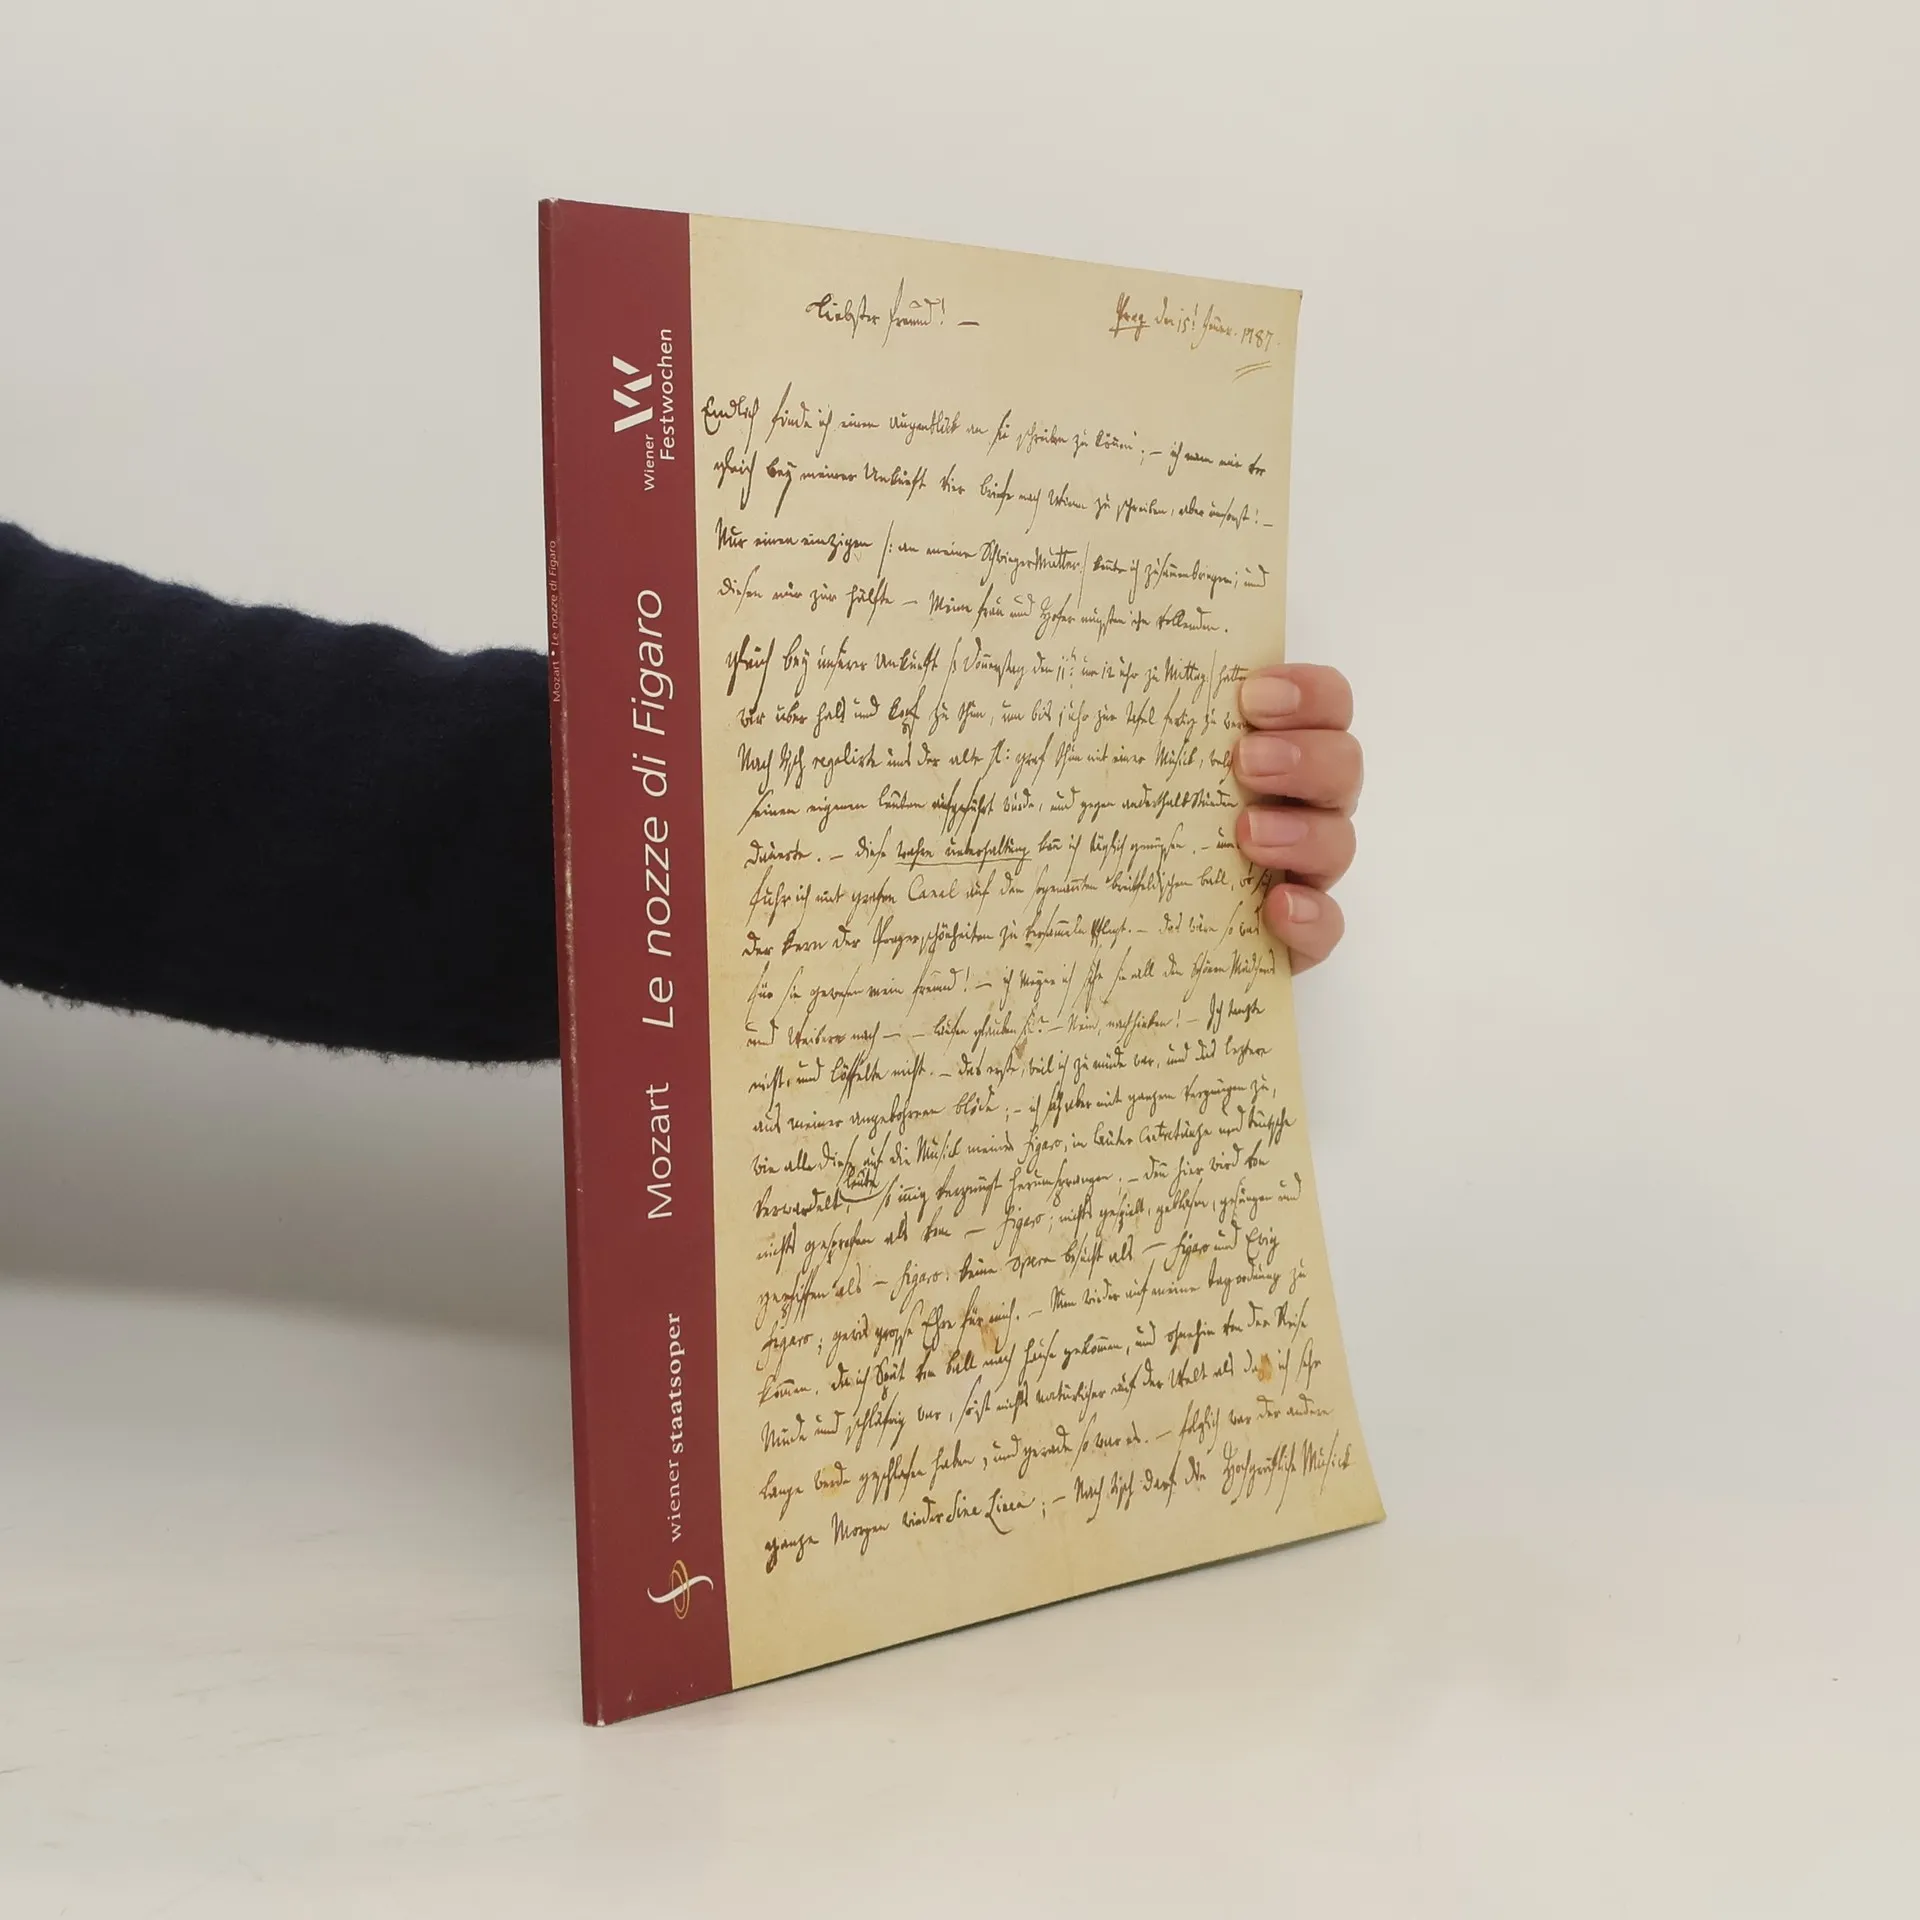 Mozart • Le nozze di Figaro
wiener staatsoper
Mozart Le nozze di Figaro
Wiener
Festwochen
Liebster freund! —
Prag den 15:t Jenner. 1787.
Endlich finde ich einen augenblick an Sie schreiben zu können; — ich nam mir vor
gleich bey meiner Ankunft vier briefe nach Wienn zu schreiben, aber umsonst! —
Nur einen einzigen /: an meine SchwiegerMutter :/ konnte ich zusammenbringen; und
diesen nur zur hälfte — Meine frau und Hofer mussten ihn vollenden.
gleich bey unserer Ankunft /: Donnerstag den 11:t um 12 uhr zu Mittag :/ hatte
wir über hals und kopf zu thun, um bis 1 uhr zur tafel fertig zu
Nach tisch regalirte uns der alte H: graf thun mit einer Musick,
seinen eigenen leuten aufgeführt wurde, und gegen anderthalb Stunden
dauerte. — diese wahre unterhaltung kan ich täglich geniessen. —
fuhr ich mit grafen Canal auf den sogenannten breitfeldischen ball, wo sich
der kern der Prager schönheiten zu versammeln pflegt. — das wäre so was
für sie gewesen mein freund! — ich meyne ich sehe sie all den schönen Mädchens
und Weibern nach — — laufen glauben sie? — Nein, nachhinken! — Ich tanzte
nicht, und löffelte nicht. — das erste, weil ich zu müde war, und das letztere
aus meiner angebohrnen blöde; — ich sah aber mit ganzem Vergnügen zu,
wie alle diese auf die Musick meines figaro, in lauter Contretänze und teutsche
leute
verwandelt, so innig vergnügt herumsprangen; — denn hier wird von
nichts gesprochen als vom — figaro; nichts gespielt, geblasen, gesungen und
gepfiffen als — figaro: keine Opera besucht als — figaro und Ewig
figaro; gewis grosse Ehre für mich. — Nun wieder auf meine tagordnung zu
kommen. da ich Spät vom ball nach hause gekommen, und ohnehin von der Reise
Müde und schläfrig war, so ist nichts natürlicher auf der Welt als daß ich sehr
lange werde geschlafen haben, und gerade so war es. — folglich war der andere
ganze Morgen wieder Sine Linea; — Nach tisch darf die Hochgräfliche Musick